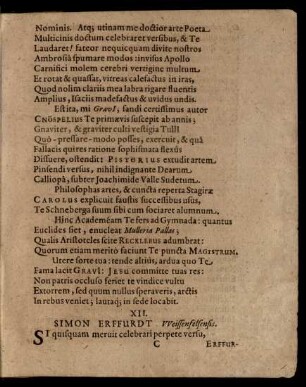 Nominis. Atq; utinam me doctior arte Poeta
Multicinis doctum celebraret versibus, & Te
Laudaret! fateor nequicquam divite nostros
Ambrosiâ spumare modos: invisus Apollo
Carnifici molem cerebri vertigine multum
Et rotat & quassat, vitreas calefactus in iras,
Quod nolim clariis mea labra rigare fluentis
Amplius, Isaciis madefactus & uvidus undis.
Estita, mi Gravî, fandi certissimus autor
CNÖSPELIUS Te primævis suscepit ab annis;
Gnaviter, & graviter culti vestigia Tulli
Quò-pressare-modo posses, exercuit, & quâ
Fallacis quires ratione sophismata flexûs
Dissuere, ostendit: PISTORIUS extudit artem
Pinsendi versus, nihil indignante Dearum
Calliopâ, subter Joachimide Valle Sudetum.
Philosophas artes, & cuncta reperta Stagiræ
CAROLUS explicuit faustis successibus usus,
Te Schneberga suum sibi cum sociaret alumnum.
Hinc Academéam Te fers ad Gymnada: quantus
Euclides siet, enucleat Mulleria Pallas;
Qualis Aristoteles scite RECELEBUS adumbrat:
Quorum etiam merito faciunt Te puncta MAGISTRUM.
Utere forte sua: tende altiùs, ardua quo Te
Fama jacit GRAVÎ: JESU committe tuas res:
Non patris occluso feriet te vindice vultu
Extorrem, sed quum nullus speraveris, arctis
In rebus veniet; lauraq; in sede locabit.
XII.
SIMON ERFFURDT Weissenfelsensis.
SI quisquam meruit celebrari perpete versu,
C ERFFUR-